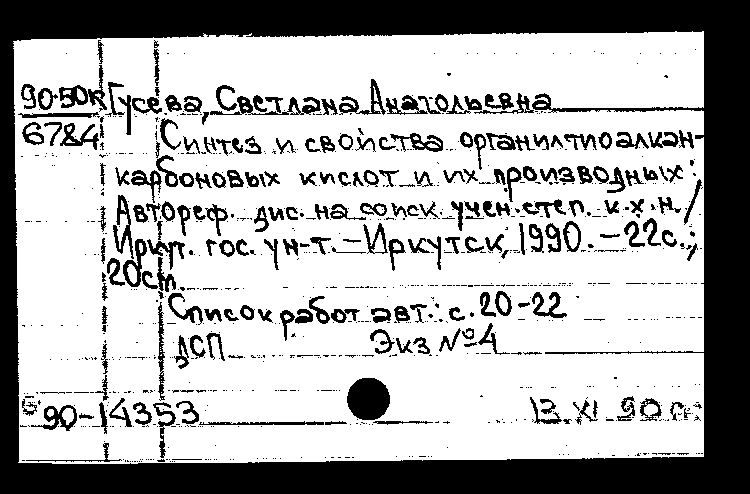 90-50к Гусева, Светлана Анатольевна
6784 Синтез и свойства органилтиоалкан-
карбоновых кислот и их производных:
Автореф. дис. на соиск. учен. степ. к.х.н. /
Иркут. гос. ун-т. - Иркутск, 1990. - 22с.;
20см.
Список работ авт.: с. 20-22
ДСП Экз №4
90-14353 13 XI 90